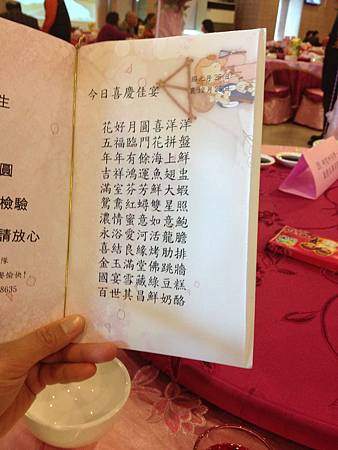 生
圓
檢驗
請放心
隊
愉快!
8635
今日喜慶佳宴
花好月圓喜洋洋
五福臨門花拼盤
年年有餘海上鮮
吉祥鴻運魚翅虫
滿室芬芳鮮大蝦
鴛鴦紅蟳雙星照
濃情蜜意如意鮑
永浴愛河活龍膽
喜結良緣烤肋排
金玉滿堂佛跳牆
國宴雪藏綠豆糕
百世其昌鮮奶酪